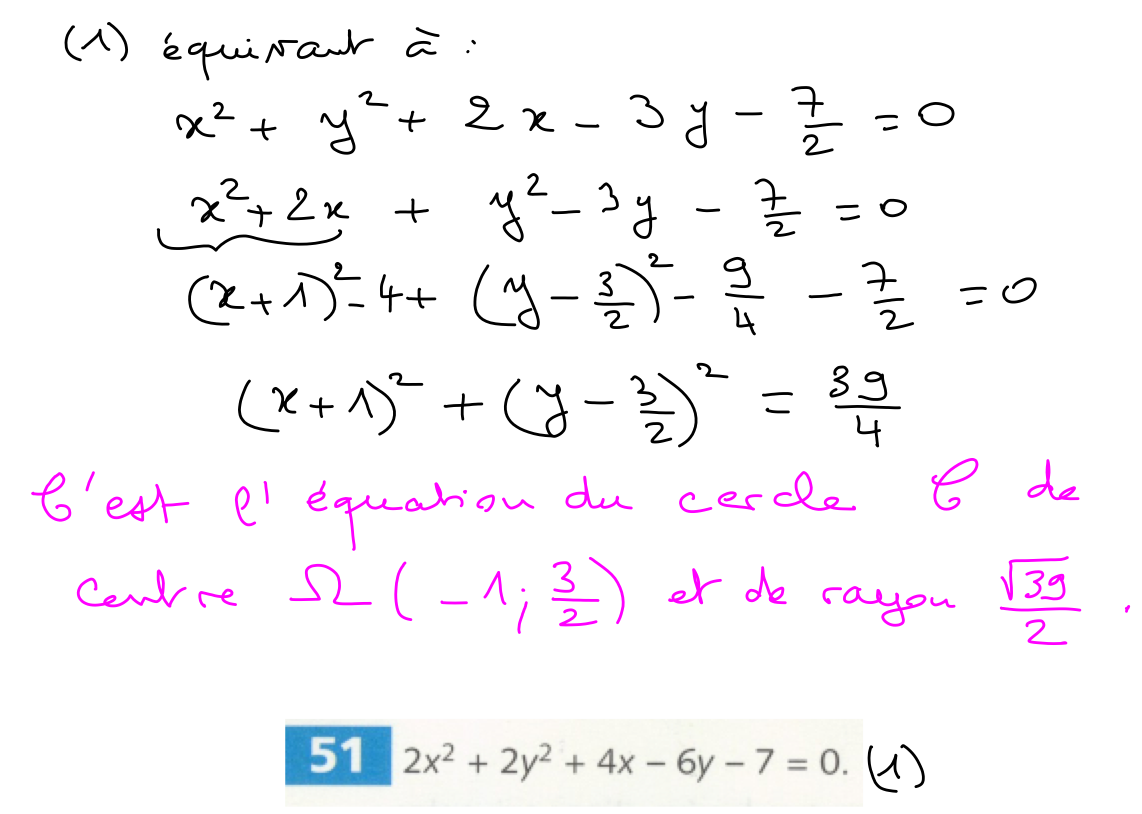 (1) équivaut à :
x² + y² + 2x - 3y - 7/2 = 0
x² + 2x + y² - 3y - 7/2 = 0
(x+1)² - 4 + (y - 3/2)² - 9/4 - 7/2 = 0
(x+1)² + (y - 3/2)² = 39/4
C'est l'équation du cercle C de
centre Ω(-1; 3/2) et de rayon √39/2.
51 2x² + 2y² + 4x – 6y – 7 = 0. (1)